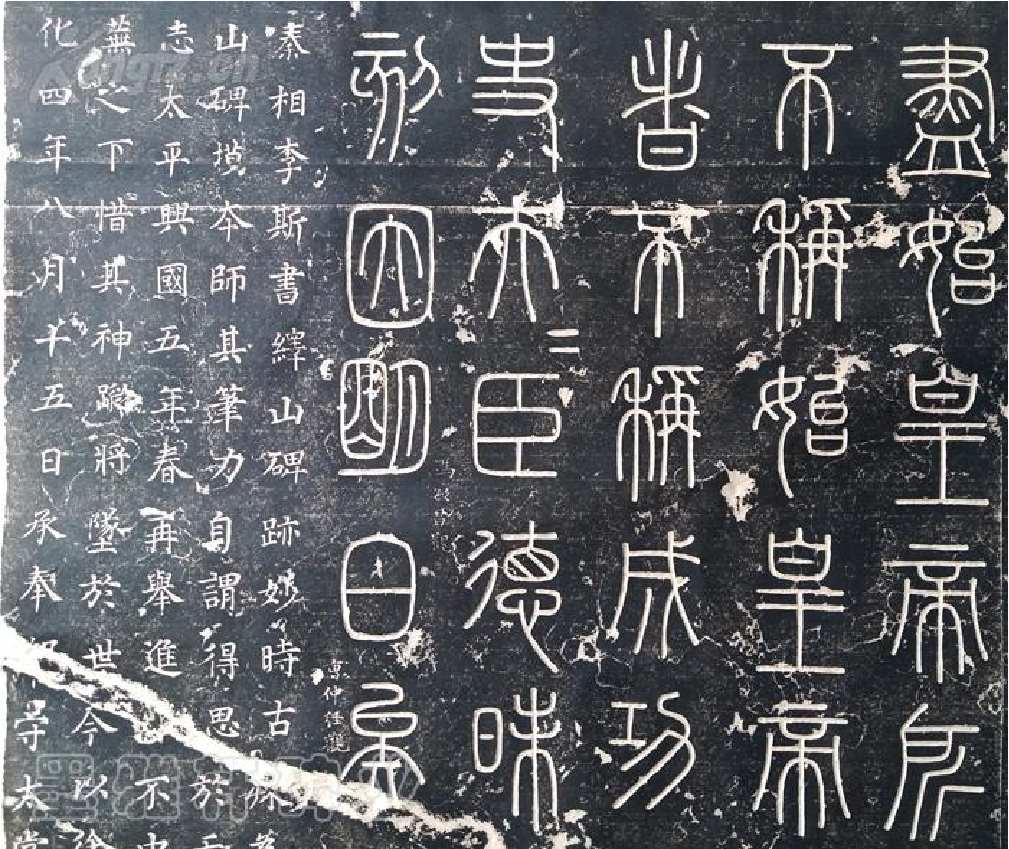 盡始皇帝所
不稱始皇帝
者不稱成功
史夫=臣德昧
刻因明白矣
秦相李斯書繹山碑跡妙時古殊
山碑摸本師其筆力自謂得思於
志太平興國五年春再舉進不中
蕪之下惜其神蹤將墜於世今以徐
化四年八月十五日承奉郎守太常